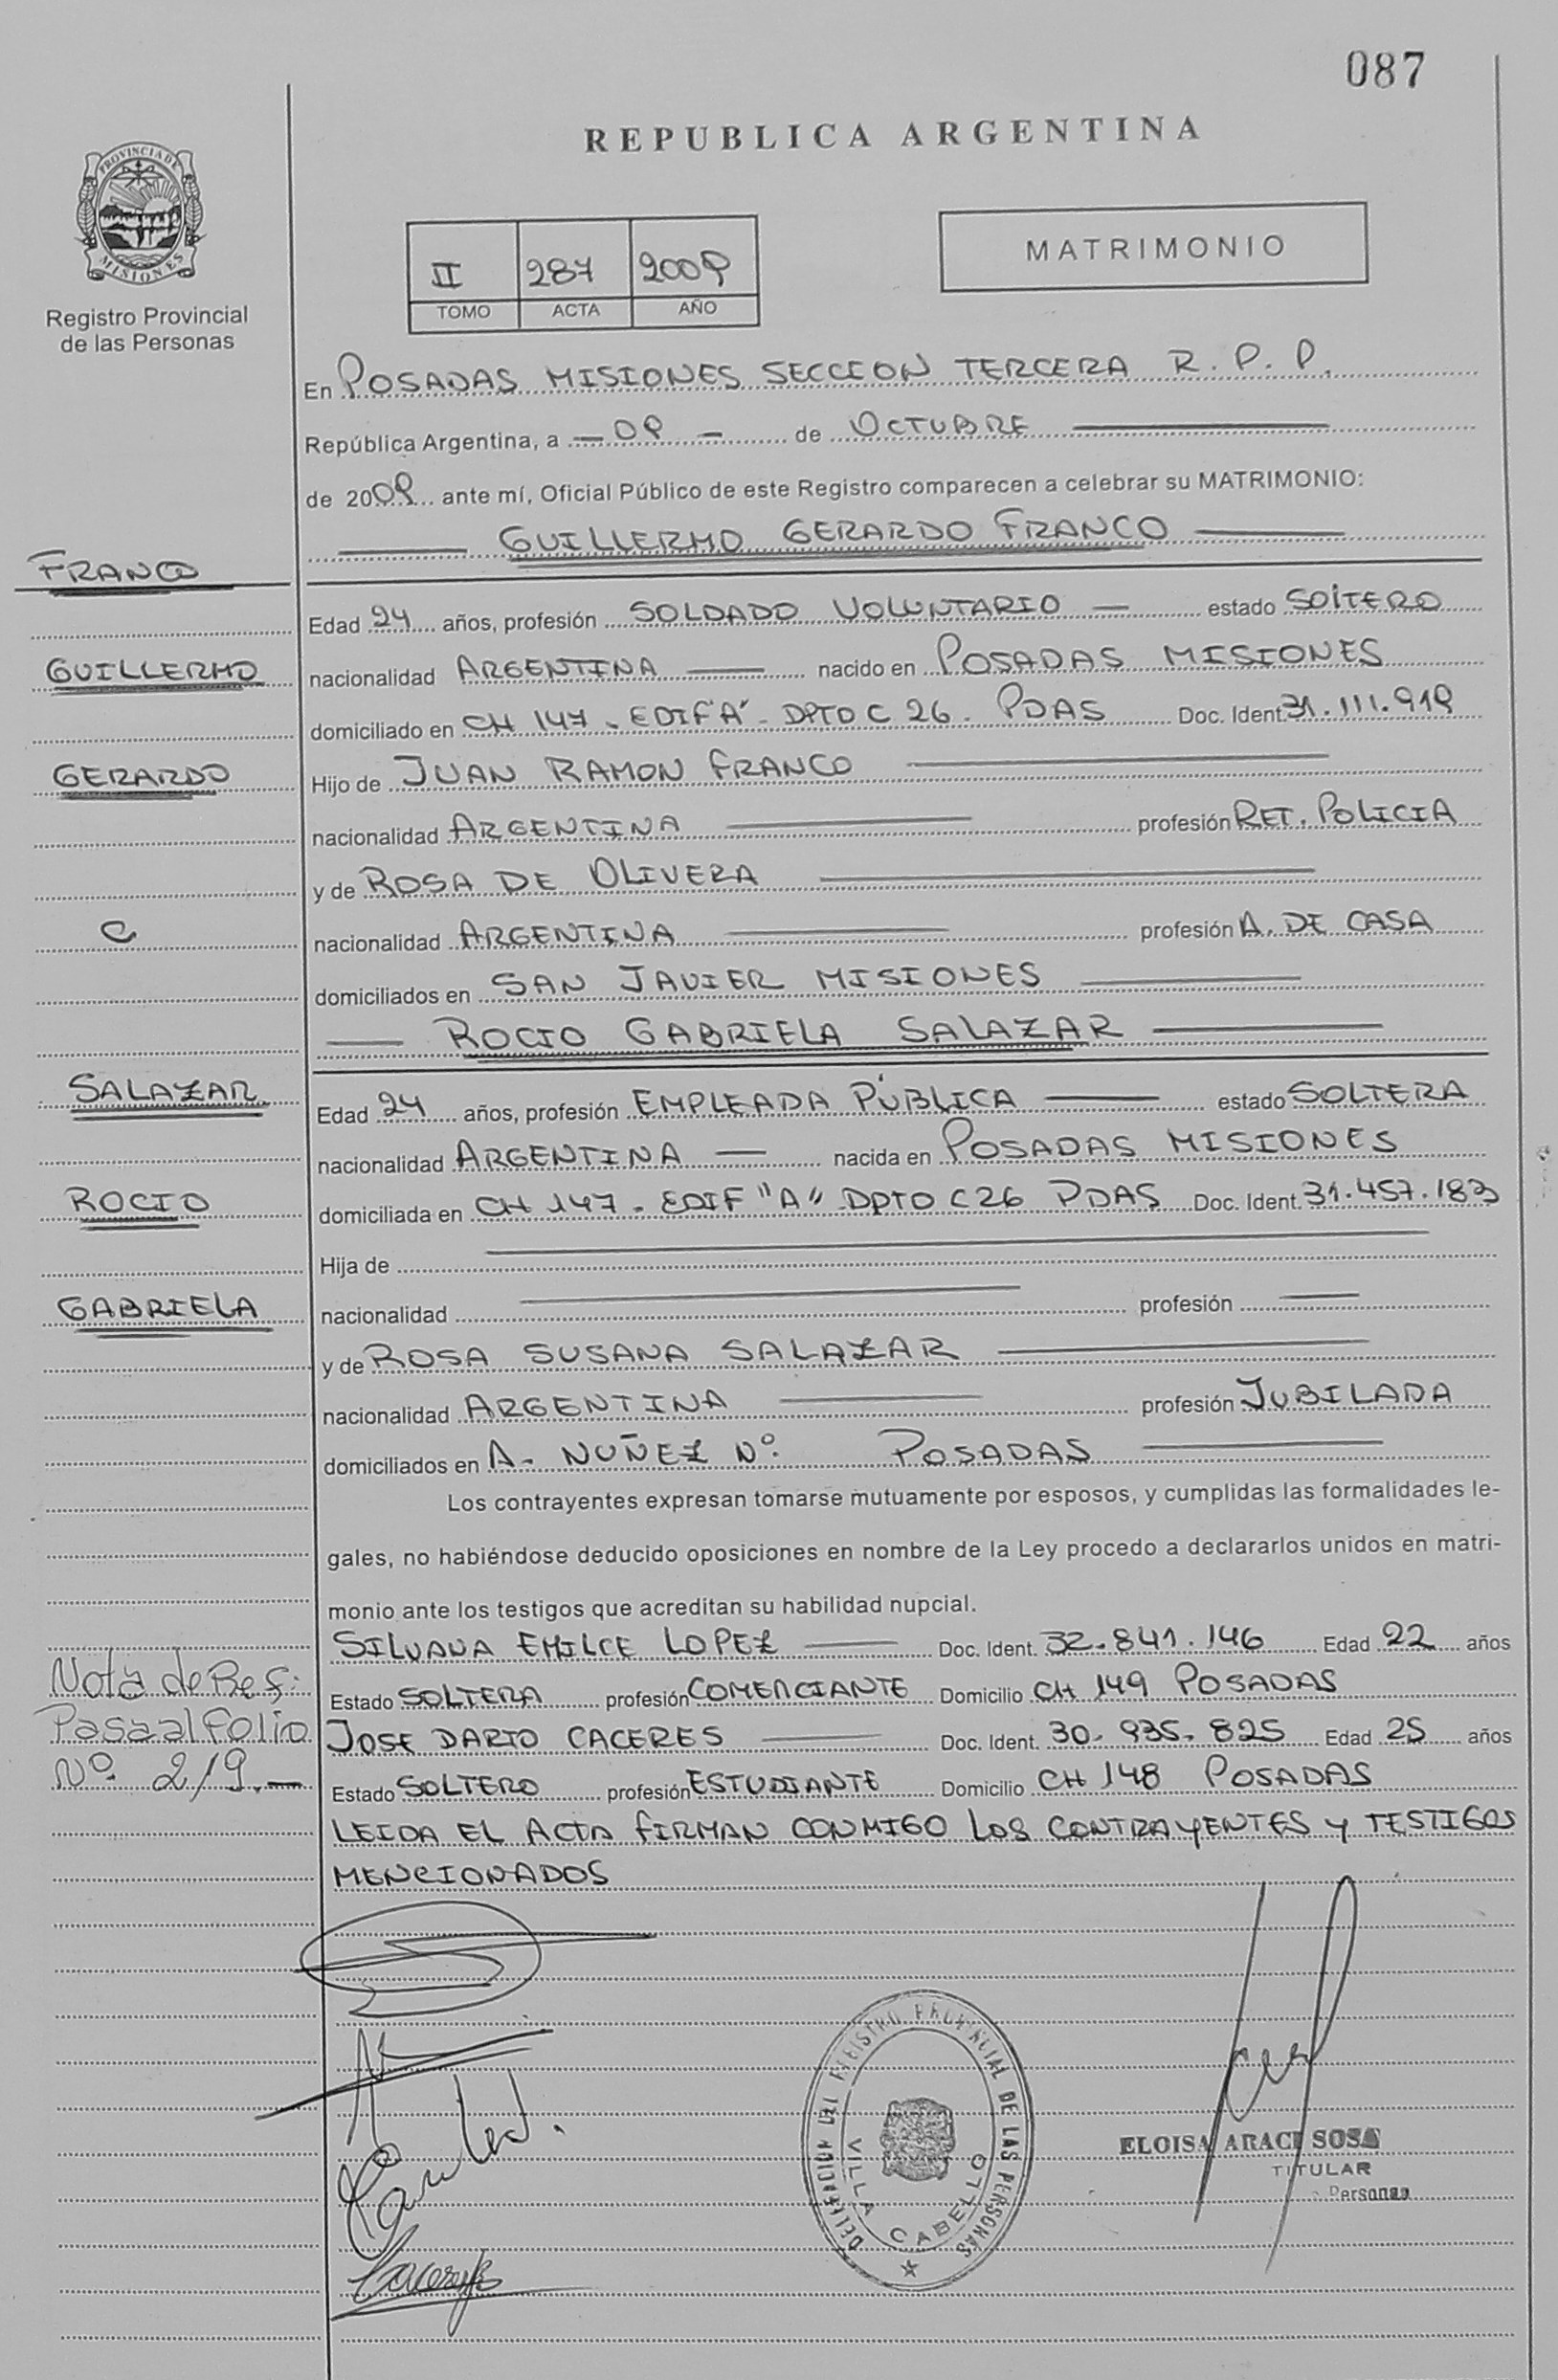 087
REPUBLICA ARGENTINA
PROVINCIA DE
MISIONES
Registro Provincial
de las Personas
II 287 2009
TOMO ACTA AÑO
MATRIMONIO
En POSADAS MISIONES SECCION TERCERA R. P. P.
República Argentina, a — 09 — de OCTUBRE
de 2009 ante mí, Oficial Público de este Registro comparecen a celebrar su MATRIMONIO:
GUILLERMO GERARDO FRANCO
FRANCO
Edad 24 años, profesión SOLDADO VOLUNTARIO — estado SOLTERO
GUILLERMO
nacionalidad ARGENTINA — nacido en POSADAS MISIONES
domiciliado en CH 147 - EDIF "A" - DPTO C 26. PDAS Doc. Ident. 31.111.919
GERARDO
Hijo de JUAN RAMON FRANCO
nacionalidad ARGENTINA profesión RET. POLICIA
y de ROSA DE OLIVERA
C
nacionalidad ARGENTINA profesión A. DE CASA
domiciliados en SAN JAVIER MISIONES
ROCIO GABRIELA SALAZAR
SALAZAR
Edad 24 años, profesión EMPLEADA PÚBLICA — estado SOLTERA
nacionalidad ARGENTINA — nacida en POSADAS MISIONES
ROCIO
domiciliada en CH 147 - EDIF "A" DPTO C26 PDAS Doc. Ident. 31.457.183
Hija de
GABRIELA
nacionalidad profesión —
y de ROSA SUSANA SALAZAR
nacionalidad ARGENTINA profesión JUBILADA
domiciliados en A. NUÑEZ Nº. POSADAS
Los contrayentes expresan tomarse mutuamente por esposos, y cumplidas las formalidades le-
gales, no habiéndose deducido oposiciones en nombre de la Ley procedo a declararlos unidos en matri-
monio ante los testigos que acreditan su habilidad nupcial.
SILVANA EMILCE LOPEZ — Doc. Ident. 32.841.146 Edad 22 años
Nota de Ref:
Estado SOLTERA profesión COMERCIANTE Domicilio CH 149 POSADAS
Pasa al folio
JOSE DARIO CACERES — Doc. Ident. 30.935.825 Edad 25 años
Nº 219.—
Estado SOLTERO profesión ESTUDIANTE Domicilio CH 148 POSADAS
LEIDA EL ACTA FIRMAN CONMIGO LOS CONTRAYENTES Y TESTIGOS
MENCIONADOS
DELEGACION DEL REGISTRO PROVINCIAL DE LAS PERSONAS
VILLA CABELLO
ELOISA ARACI SOSA
TITULAR
Personas